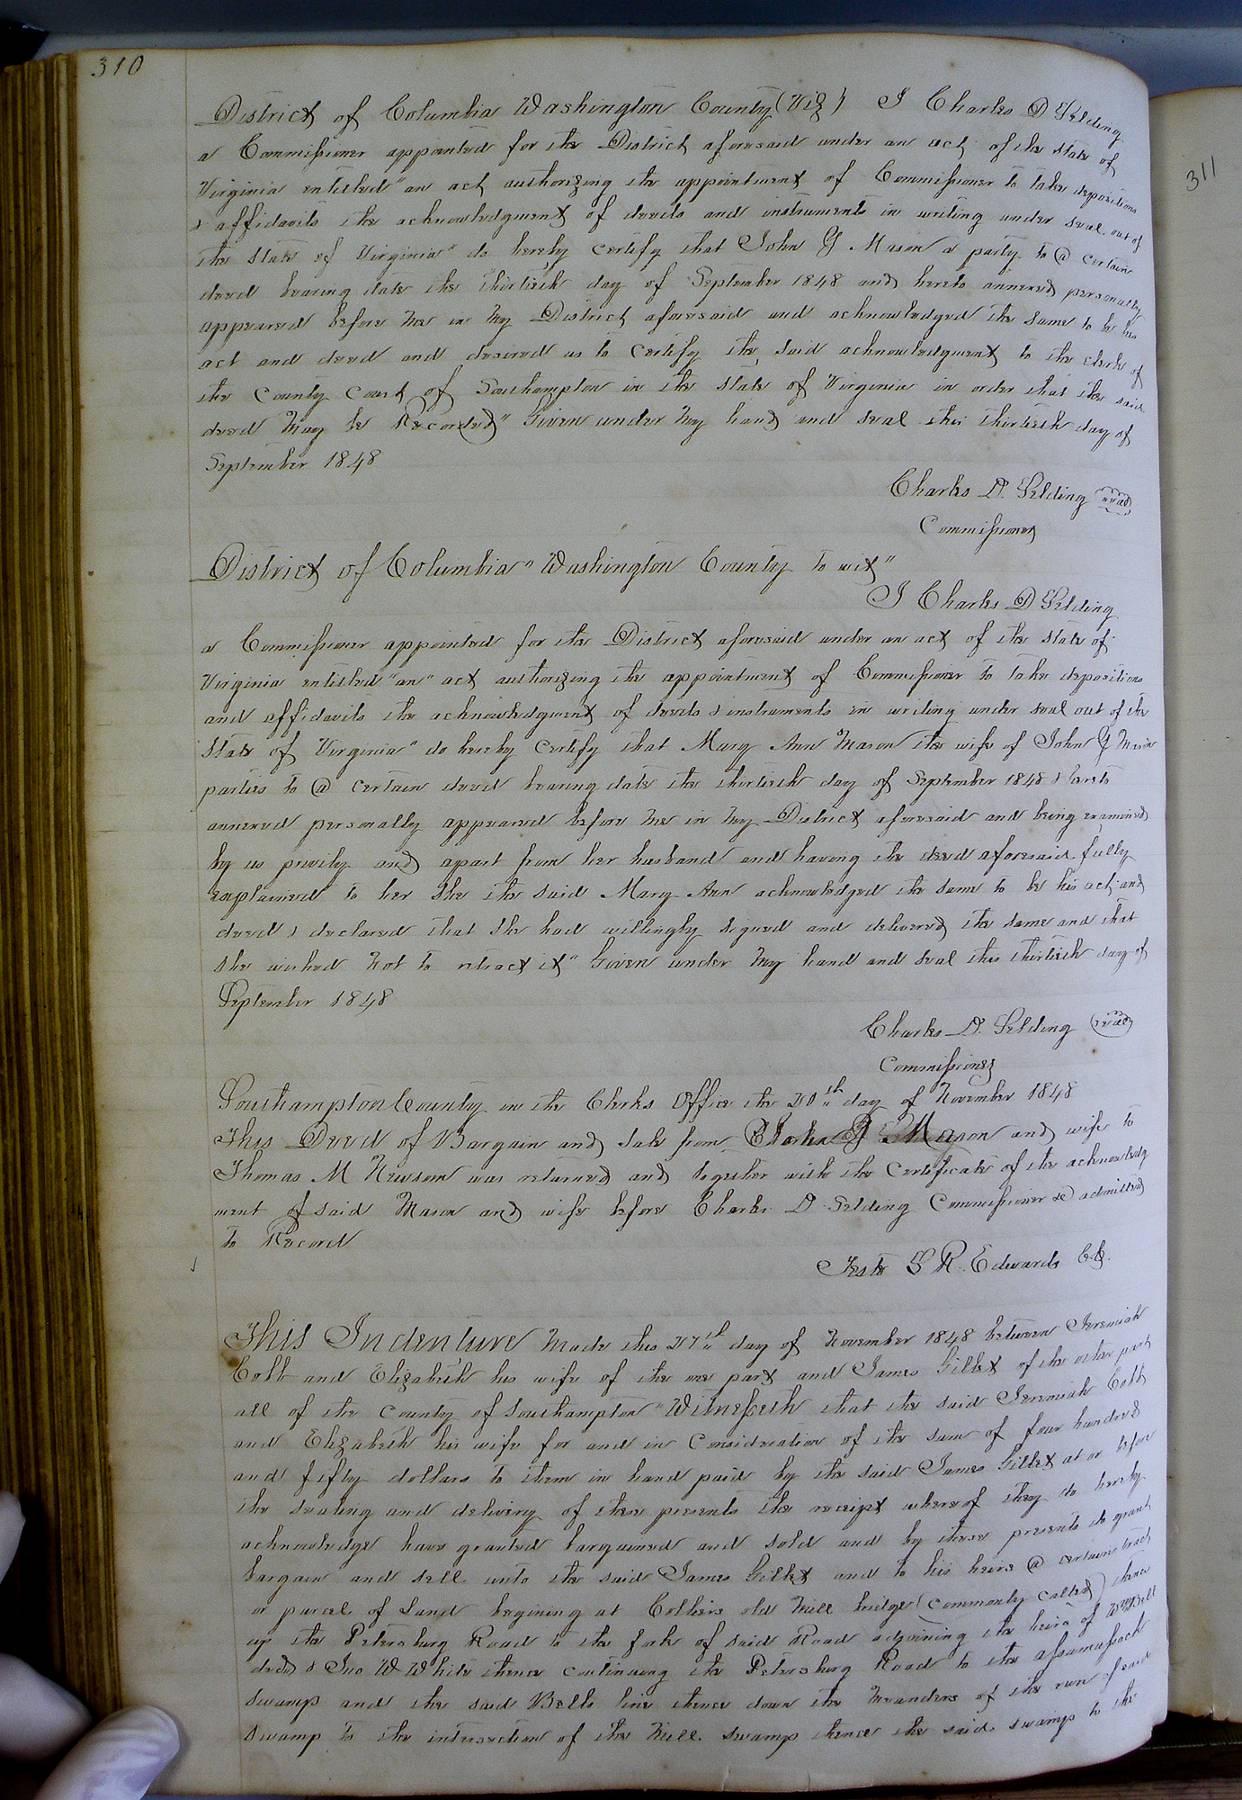 310
District of Columbia Washington County (Viz) I Charles D Gelding
a Commissioner appointed for the District aforesaid under an act of the State of
Virginia entitled "an act authorizing the appointment of Commissioner to take depositions
& affidavits the acknowledgment of deeds and instruments in writing under seal out of
the State of Virginia" do hereby certify that John Y Mason a party to @ certain
deed bearing date the thirtieth day of September 1848 and hereto annexed personally
appeared before me in my District aforesaid and acknowledged the same to be his
act and deed and desired us to certify the said acknowledgment to the clerk of
the County Court of Southampton in the State of Virginia in order that the said
deed may be Recorded" Given under my hand and seal this thirtieth day of
September 1848
Charles D. Gelding seal
Commissioner
District of Columbia" Washington County to wit"
I Charles D Gelding
a Commissioner appointed for the District aforesaid under an act of the State of
Virginia entitled "an" act authorizing the appointment of Commissioner to take depositions
and affidavits the acknowledgment of deeds & instruments in writing under seal out of the
State of Virginia" do hereby certify that Mary Ann Mason the wife of John Y Mason
parties to @ certain deed bearing date the thirtieth day of September 1848 & hereto
annexed personally appeared before me in my District aforesaid and being examined
by us privily and apart from her husband and having the deed aforesaid fully
explained to her she the said Mary Ann acknowledged the same to be his act and
deed & declared that she had willingly signed and delivered the same and that
she wished not to retract it" Given under my hand and seal this thirtieth day of
September 1848
Charles D. Gelding seal
Commissioner
Southampton County in the Clerks Office the 20th day of November 1848
This Deed of Bargain and Sale from John Y Mason and wife to
Thomas M Newsom was returned and together with the Certificate of the acknowledg
ment of said Mason and wife before Charles D Gelding Commissioner &c admitted
to Record
Teste L R. Edwards C.C.
This Indenture made this 27th day of November 1848 between Jeremiah
Cobb and Elizabeth his wife of the one part and James Gillet of the other part
all of the County of Southampton "Witnesseth that the said Jeremiah Cobb
and Elizabeth his wife for and in Consideration of the sum of four hundred
and fifty dollars to them in hand paid by the said James Gillet at or before
the sealing and delivery of these presents the receipt whereof they do hereby
acknowledge have granted bargained and sold and by these presents do grant
bargain and sell unto the said James Gillet and to his heirs @ certain tract
or parcel of Land begining at Colliers old Mill bridge (commonly called) thence
up the Petersburg Road to the fork of said Road adjoining the heirs of Wm Bell
decd & Jno W White thence continuing the Petersburg Road to the Assamussock
swamp and the said Bells line thence down the meanders of the run of said
swamp to the intersection of the Mill swamp thence the said swamp to the
311